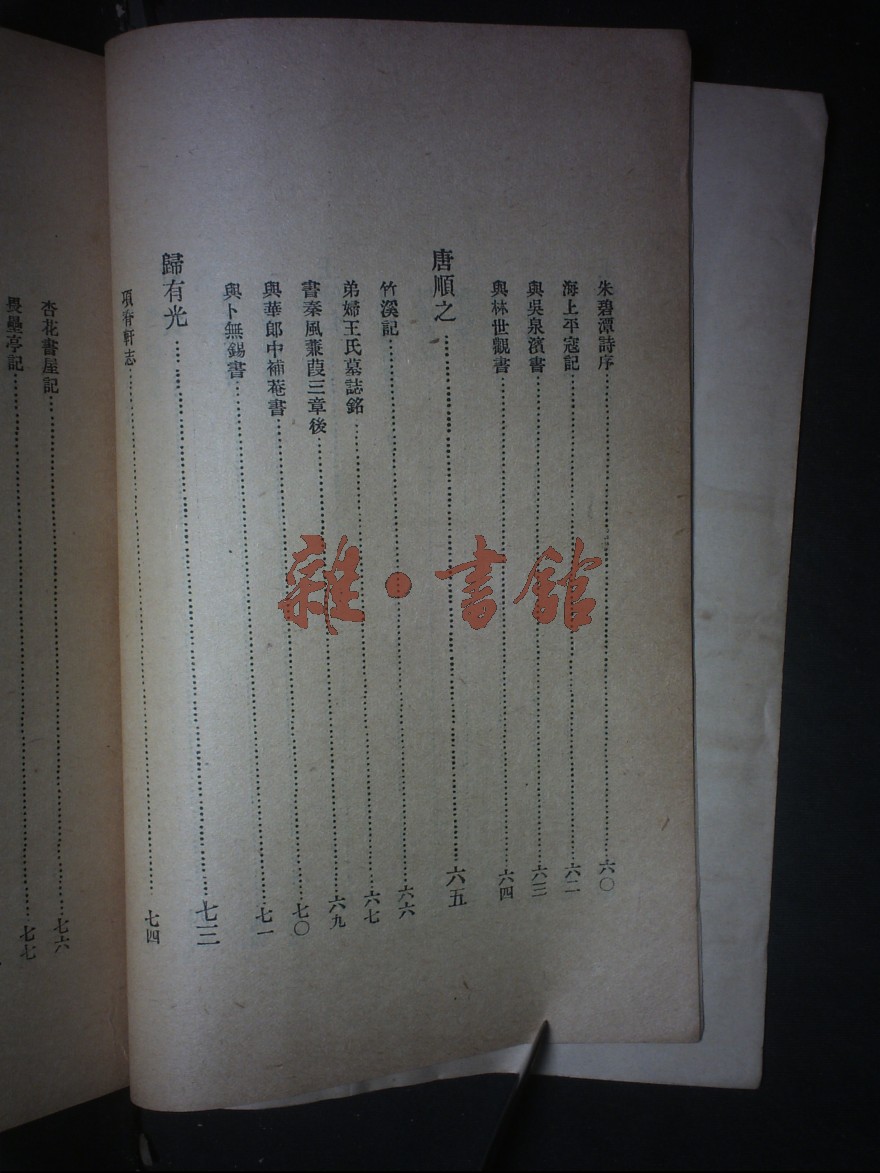 朱碧潭詩序……六〇
海上平寇記……六二
與吳泉濱書……六三
與林世觀書……六四
唐順之……六五
竹溪記……六六
弟婦王氏墓誌銘……六七
書秦風蒹葭三章後……六九
與華郎中補菴書……七〇
與卜無錫書……七一
歸有光……七三
項脊軒志……七四
杏花書屋記……七六
畏壘亭記……七七
雜·書館